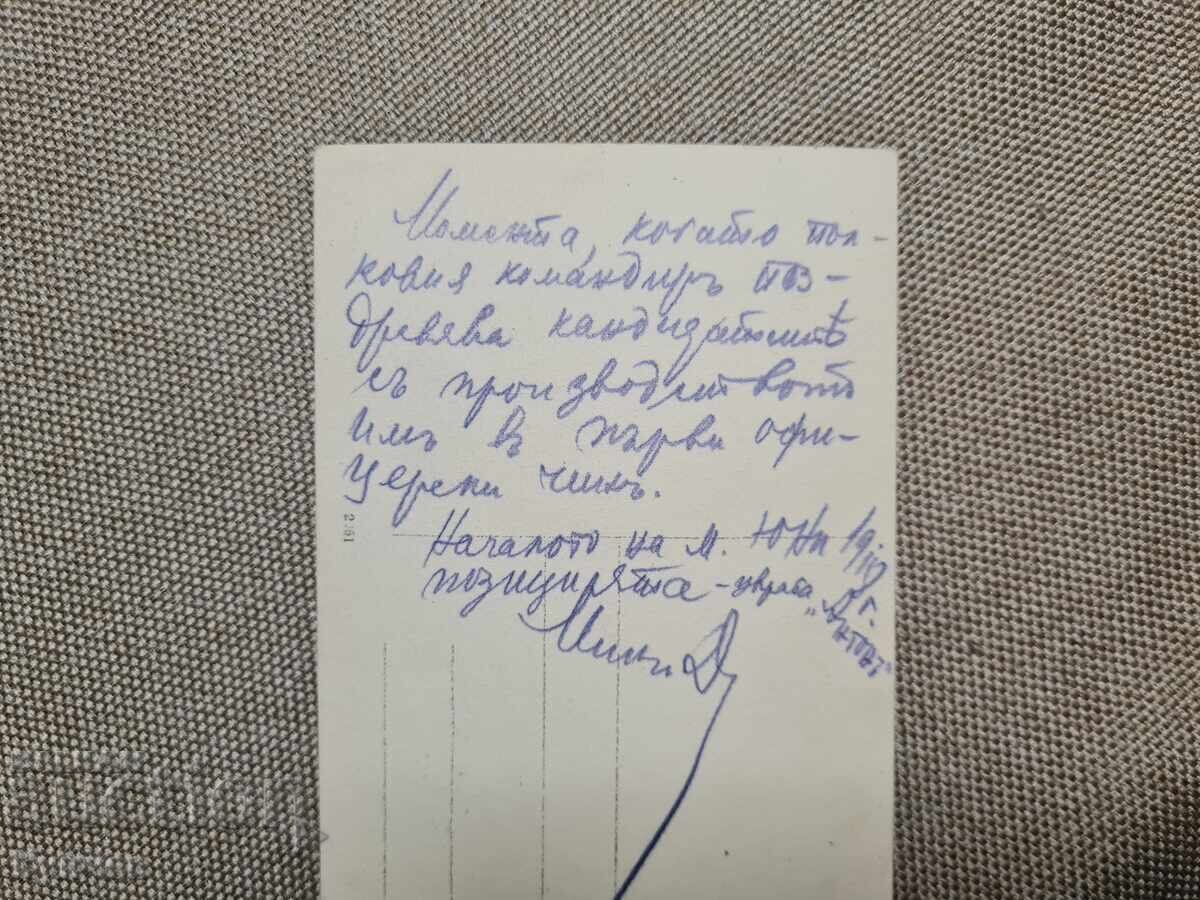 Момента, когато пол-
ковия командиръ поз-
дравява кандидатитѣ
съ производството
имъ въ първи офи-
церски чинъ.
Началото на м. Юни
позицията -
2361